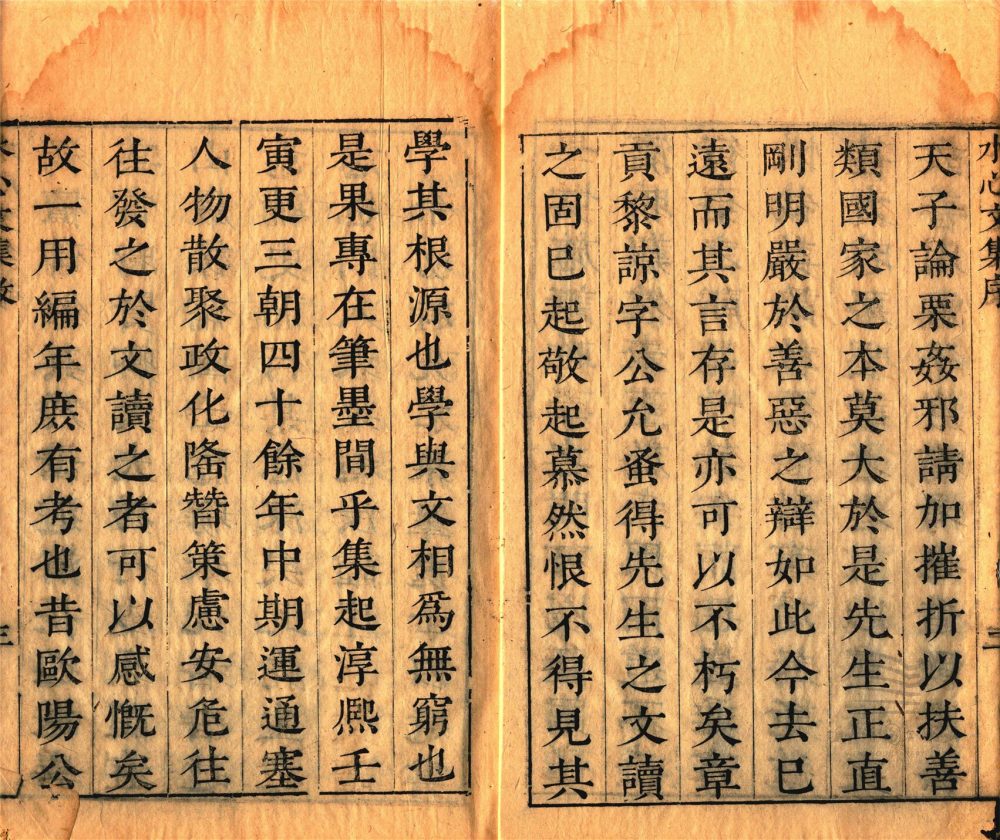 水心文集序
天子論栗姦邪請加摧折以扶善
類國家之本莫大於是先生正直
剛明嚴於善惡之辯如此今去已
遠而其言存是亦可以不朽矣章
貢黎諒字公允蚤得先生之文讀
之固已起敬起慕然恨不得見其
學其根源也學與文相爲無窮也
是果專在筆墨間乎集起淳熈壬
寅更三朝四十餘年中期運通塞
人物散聚政化隆替策慮安危往
往發之於文讀之者可以感慨矣
故一用編年庻有考也昔歐陽公
三